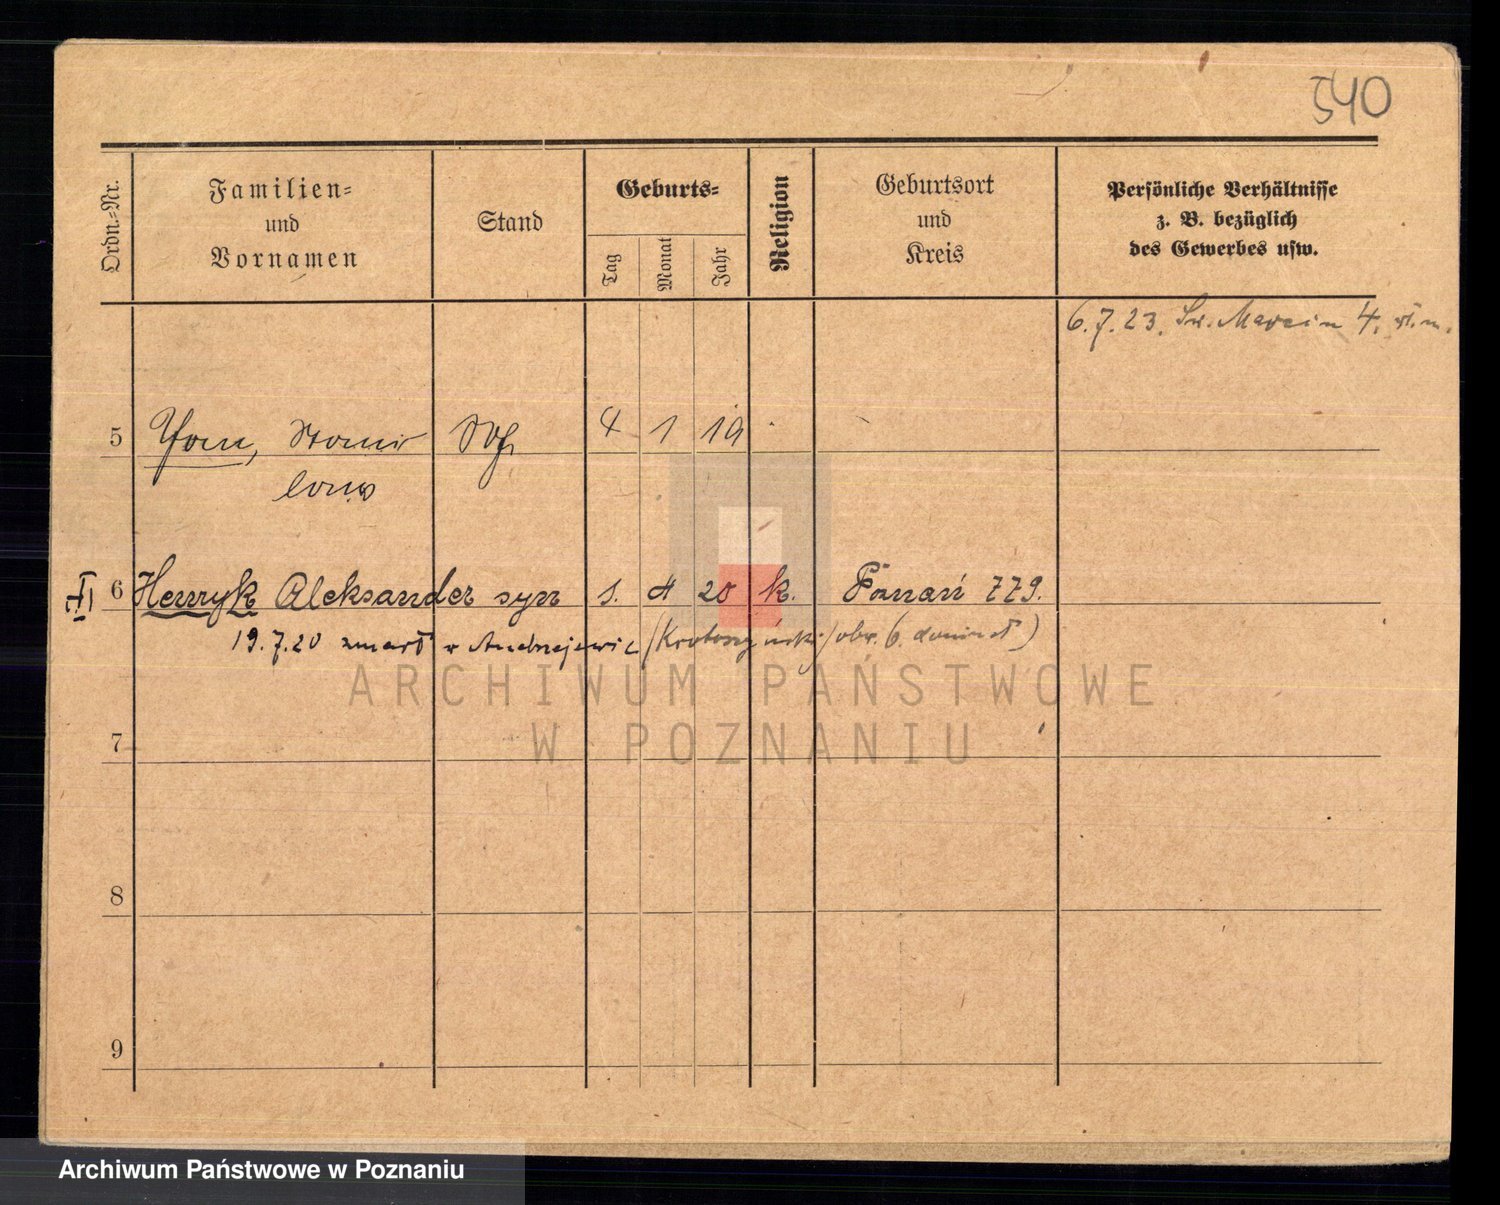 540
Ordn.=Nr.
Familien=
und
Vornamen
Stand
Geburts=
Tag
Monat
Jahr
Religion
Geburtsort
und
Kreis
Persönliche Verhältnisse
z. B. bezüglich
des Gewerbes usw.
6.7.23. Św. Marcin 4.
5 Stanis 4 1 19
laus
6 Henryk Aleksander syn 1. 4 20 k. Poznań 779.
19.7.20 zmarł w Andrzejewie (Krotoszyński)
7
8
9
ARCHIWUM PAŃSTWOWE
W POZNANIU
Archiwum Państwowe w Poznaniu